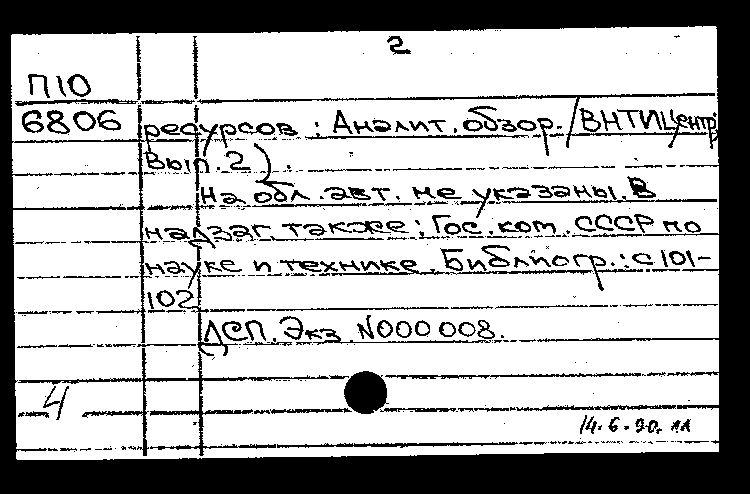 2
П10
6806 ресурсов : Аналит. обзор. / ВНТИЦентр;
Вып. 2 ) .
На обл. авт. не указаны. В
надзаг. также : Гос. ком. СССР по
науке и технике. Библиогр.: с 101-
102
ДСП. Экз N000 008.
4
14.6.90. 11